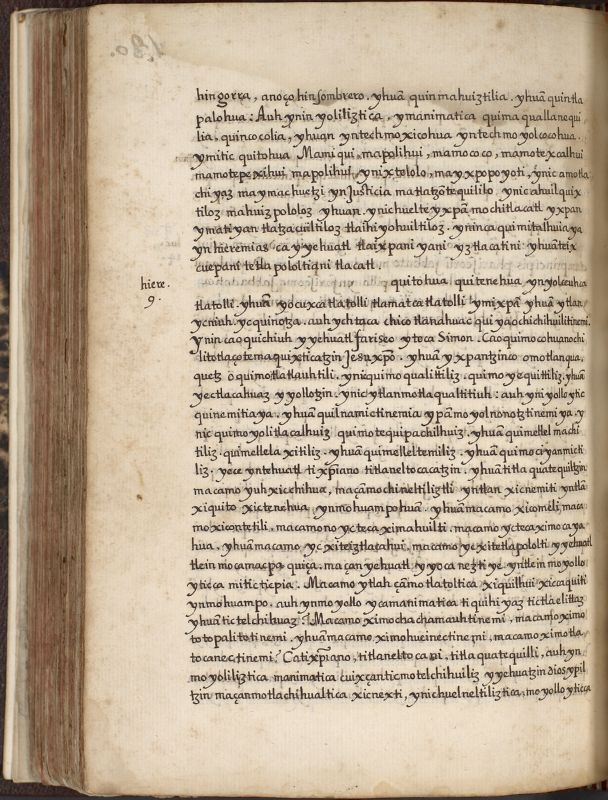 hin gorra, anoço hin sombrero. yhuã quin mahuiztilia. yhuã quin tla
palohua: Auh ynin yoliliztica, ymanimatica quima quallanequi
lia, quincocolia, yhuan yntechmoxicohua yntechmoyolcocohua.
ymitic quitohua Mamiqui, mapolihui, mamococo, mamotexcalhui
mamotepexihui mapolihui ynixtelolo, mayxpopoyoti, ynic amotla
chiyaz maymachuetzi ynJusticia matlatzõtequililo ynic ahuilquix
tiloz mahuizpololoz yhuan. ynichuelteyxpã mochitlacatl yxpan
ymatiyan tlatzacuiltiloz tlaihiyohuiltiloz. yninca quimitalhuia ya
yn hieremias ca yyehuatl tlaixpaniyani yztlacatini yhuã teix
cuepani tetlapololtiani tlacatl
quitohua, quitenehua, yn yolceuhca
hiere.
9.
tlatolli. yhuã yocuxca tlatolli tlamatcatlatolli ymixpã yhuã ytlan
ycniuh. ycquinotza. auh ychtaca chico tlanahuac quiyaochichihuilitinemi.
ynin caoquichiuh yyehuatl fariseo ytoca Simon. Ca oquimocohuanochi
lito tlaçotemaquixticatzin Jesu xpõ. yhuã yxpantzinco omotlanqua,
quetz õ quimotlatlauhtili. ynic quimoqualittiliz. quimoyequittiliz. yhuã
yectlacahuaz yyollotzin. ynic ytlanmotlaqualtitiuh: auh yni yolloytic
quinemitiaya. yhuã quilnamictinemia ypãmoyolnonotztinemiya. y
nic quimoyolitlacalhuiz quimotequipachilhuiz. yhuã quimellelmachi
tiliz. quimellelaxitiliz. yhuã quimelleltemiliz. yhuã quimociyanmicti
liz. yece yntehuatl tixpiano titlaneltocacatzin. yhuã titlaquatequiltzin
macamo yuh xicchihua, maçãmochi neltiliztli yntlan xicnemiti yntlã
xiquito xictenehua, ynmohuampohuã. yhuã macamo xicomeli maca
mo xicontentili. macamono ycteca ximahuilti. macamo ycteca ximocaya
hua, yhuã macamo yc xiteiztlacahui, macamo yc xitetlapololti yyehuatl
tlein mocamacpa quiça. maçan yehuatl yyoca nezti ye yntlein moyollo
yticca mitictictpia. Macamo ytlah çãmotlatoltica xiquilhui xicaquiti
ynmohuampo. auh ynmoyollo ycamanimatica tiquihiyaz tictlaelittaz
yhuã tictelchihuaz? Macamo ximochachamauhtinemi, macamo ximo
totopalitotinemi. yhuã macamo. ximohueinectinemi, macamo ximotla
tocanectinemi? Ca tixpiano, titlaneltocani. titlaquatequilli, auh yn
moyoliliztica manimatica cuixçantic motelchihuiliz yyehuatzin dios ypil
tzin maçanmotlachihualtica xicnexti, ynichuelneltiliztica, moyollo yticca